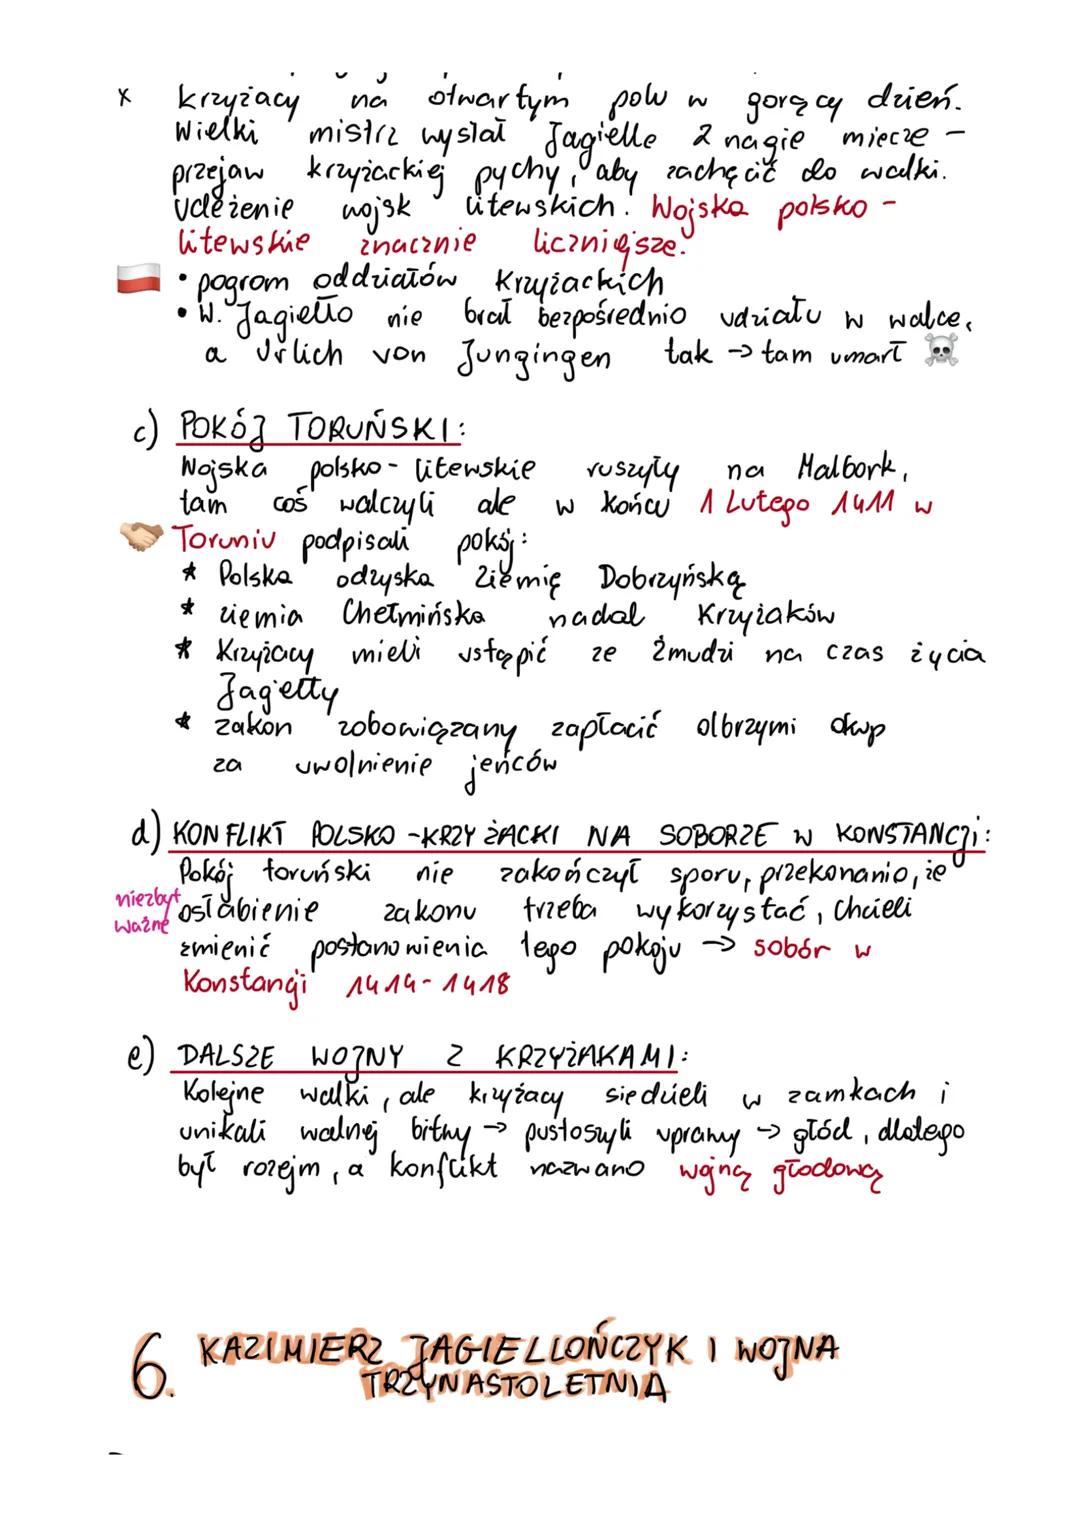 x krzyżacy na otwartym polu w gorący dzień.
Wielki mistrz wysłał Jagielle 2 nagie miecze -
przejaw krzyżackiej pychy, aby zachęcić do walki.
Uderzenie wojsk litewskich. Wojska polsko -
litewskie znacznie liczniejsze.
• pogrom oddziałów Krzyżackich
• W. Jagiełło nie brał bezpośrednio udziału w walce,
a Urlich von Jungingen tak → tam umarł ☠️
c) POKÓJ TORUŃSKI:
Wojska polsko - litewskie ruszyły na Malbork,
tam coś walczyli ale w końcu 1 Lutego 1411 w
Toruniu podpisali pokój:
* Polska odzyska Ziemię Dobrzyńską
* ziemia Chełmińska nadal Krzyżaków
* Krzyżacy mieli ustąpić ze Żmudzi na czas życia
Jagiełły
* zakon zobowiązany zapłacić olbrzymi okup
za uwolnienie jeńców
d) KONFLIKT POLSKO - KRZYŻACKI NA SOBORZE W KONSTANCJI:
Pokój toruński nie zakończył sporu, przekonanio, że
niezbyt
ważne
osłabienie zakonu trzeba wykorzystać, Chcieli
zmienić postanowienia tego pokoju → sobór w
Konstangi 1414 - 1418
e) DALSZE WOJNY Z KRZYŻAKAMI:
Kolejne walki, ale krzyżacy siedzieli w zamkach i
unikali walnej bitwy → pustoszyli uprawy → głód, dlatego
był rozejm, a konflikt nazwano wojną głodową
6. KAZIMIERZ JAGIELLOŃCZYK I WOJNA
TRZYNASTOLETNIA